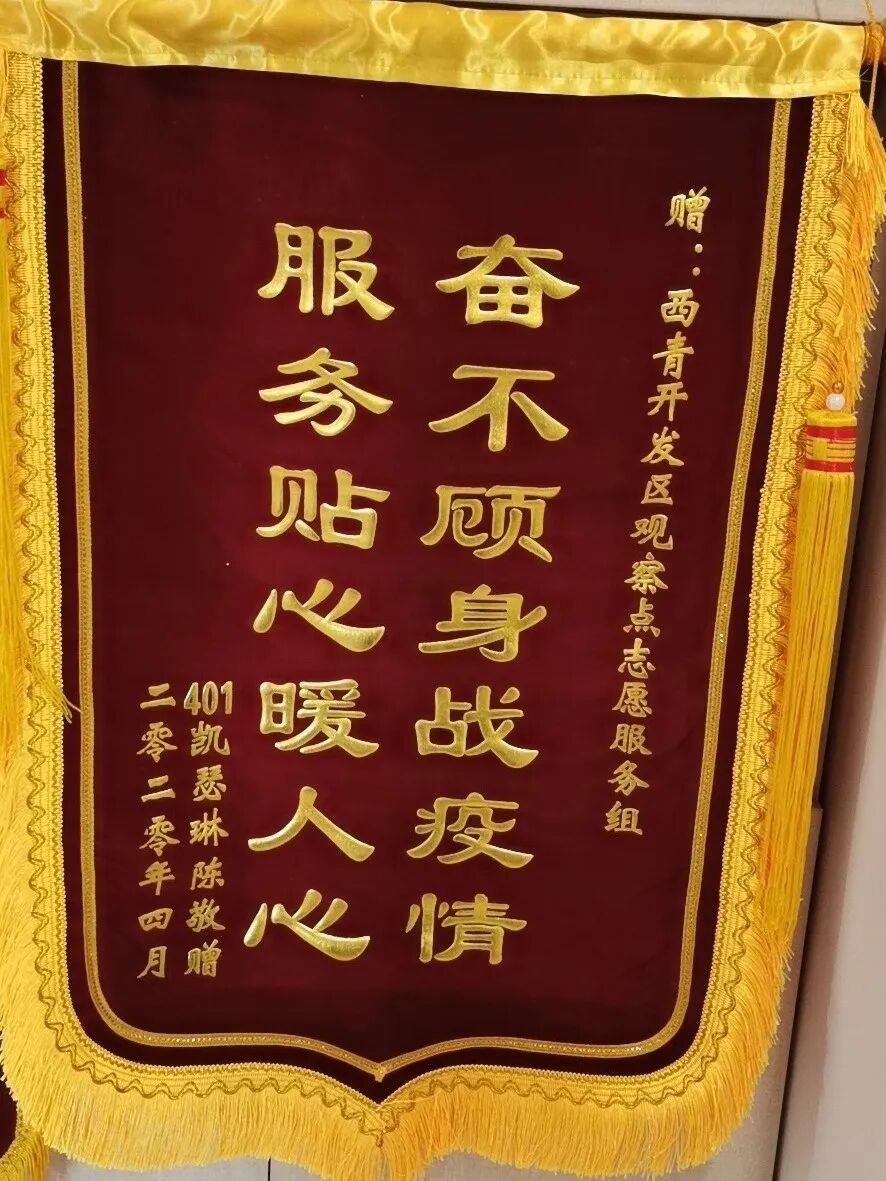 赠：西青开发区观察点志愿服务组
奋不顾身战疫情
服务贴心暖人心
401凯瑟琳陈敬赠
二零二零年四月